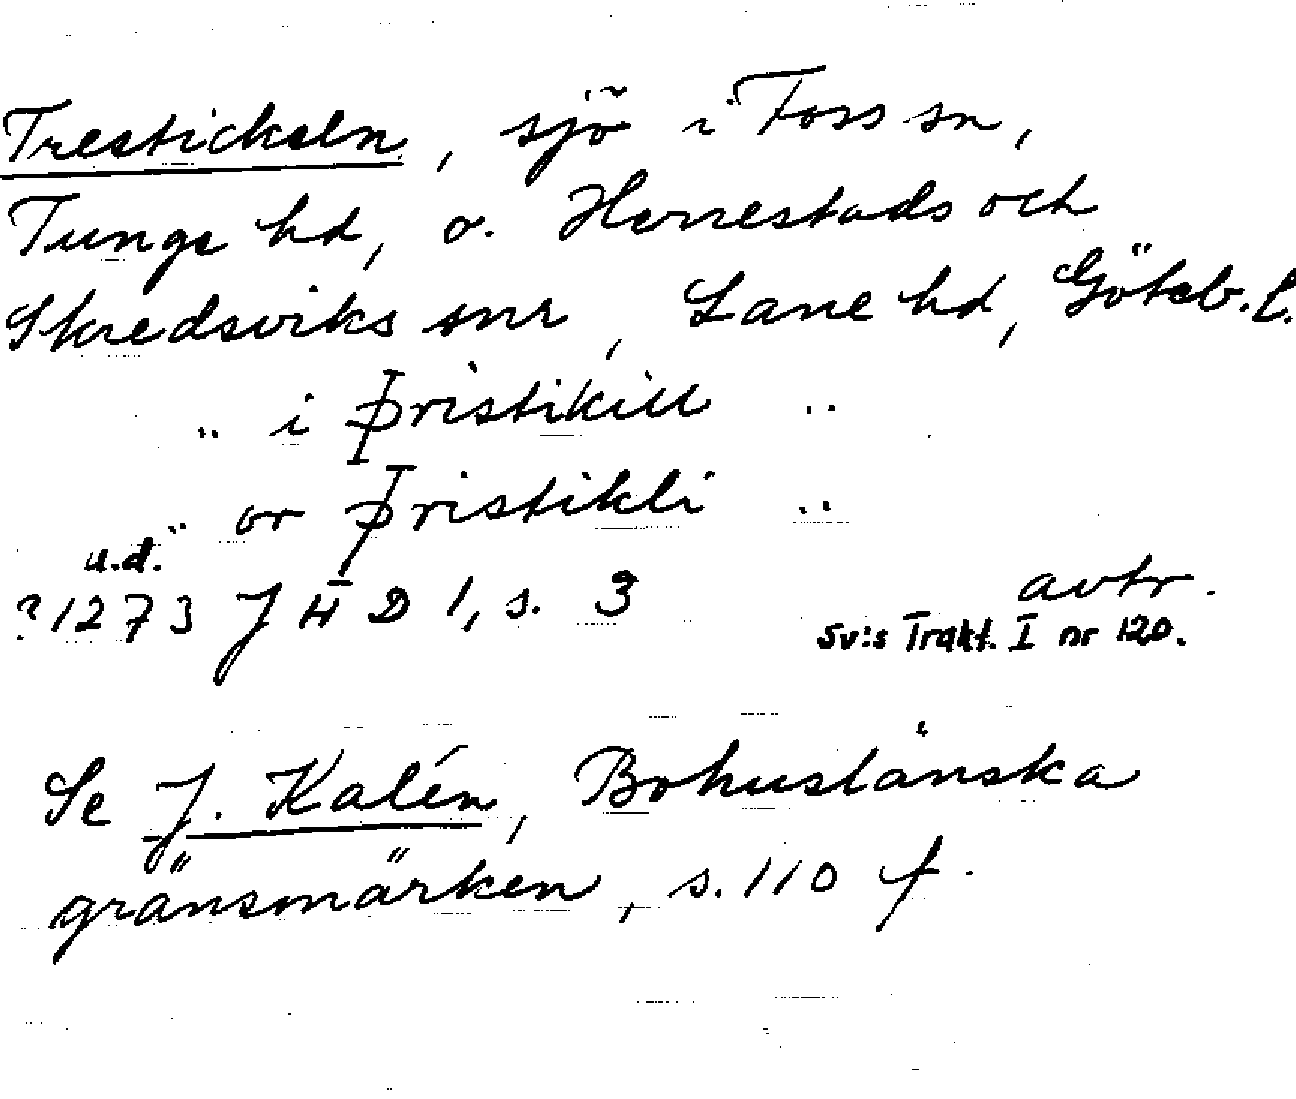 Trestickeln, sjö i Foss sn,
Tunge hd, o. Herrestads och
Skredsviks snr, Lane hd, Göteb. l.
.. i Þristikill ..
.. or Þristikli ..
u.d.
?1273 JHD 1, s. 3 avtr.
Sv:s Trakt. I nr 120.
Se J. Kalén, Bohuslänska
gränsmärken, s. 110 f.